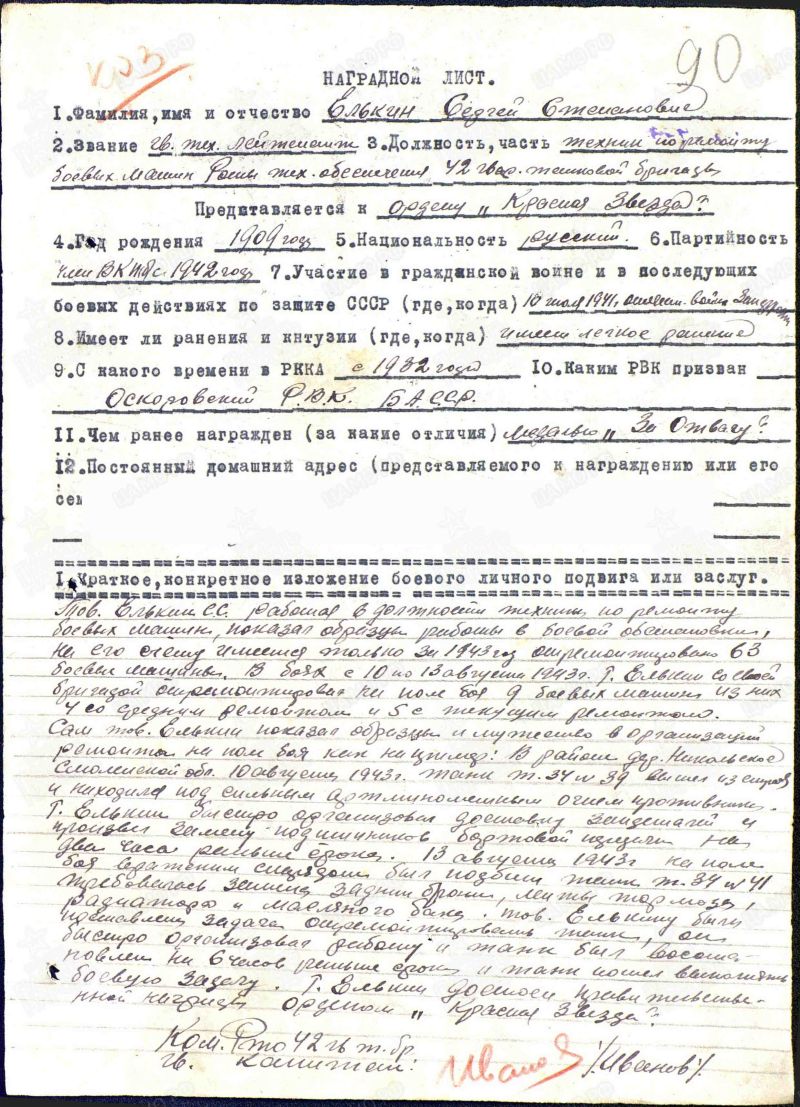 КрЗ
90
НАГРАДНОЙ ЛИСТ.
1.Фамилия,имя и отчество Елькин Сергей Степанович
2.Звание гв. тех. лейтенант 3.Должность,часть техник по ремонту
боевых машин Роты тех. обеспечения 42 гвар. танковой бригады
Представляется к ордену „Красная Звезда"
4.Год рождения 1909 году 5.Национальность русский. 6.Партийность
член ВКПб с 1942 году 7.Участие в гражданской войне и в последующих
боевых действиях по защите СССР (где,когда) 10 июля 1941, отечеств. война
8.Имеет ли ранения и кнтузии (где,когда) имеет легкое ранение
9.С какого времени в РККА с 1932 года 10.Каким РВК призван
Р.В.К. БАССР.
11.Чем ранее награжден (за какие отличия) медалью „За Отвагу"
12.Постоянный домашний адрес (представляемого к награждению или его
сем
I.Краткое,конкретное изложение боевого личного подвига или заслуг.
Тов. Елькин С.С. работая в должности техника по ремонту
боевых машин, показал образцы работы в боевой обстановке,
на его счету имеется только за 1943 год отремонтировано 63
боевых машины. В боях с 10 по 13 августа 1943г. Т. Елькин со своей
бригадой отремонтировал на поле боя 9 боевых машин из них
4 со средним ремонтом и 5 с текущим ремонтом.
Сам тов. Елькин показал образцы и мужество в организации
ремонта на поле боя как например: В районе дер. Никольское
Смоленской обл. 10 августа 1943г. танк т.34 № 39 вышел из строя
и находился под сильным артминометным огнем противника.
Т. Елькин быстро организовал доставку запчастей и
произвел замену подшипников бортовой передачи на
два часа раньше срока. 13 августа 1943г на поле
боя вражеским снарядом был подбит танк т.34 № 41
требовалась замена задней брони, ленты тормоза,
радиатора и масляного бака. тов. Елькину была
поставлена задача отремонтировать танк, он
быстро организовал работу и танк был восста-
новлен на 6 часов раньше срока и танк пошел выполнять
боевую задачу. Т. Елькин достоен правительстве-
нной награды орденом „Красная Звезда"
Ком. Рто 42 гв т. бр.
гв. капитан: Иванов /Иванов/.